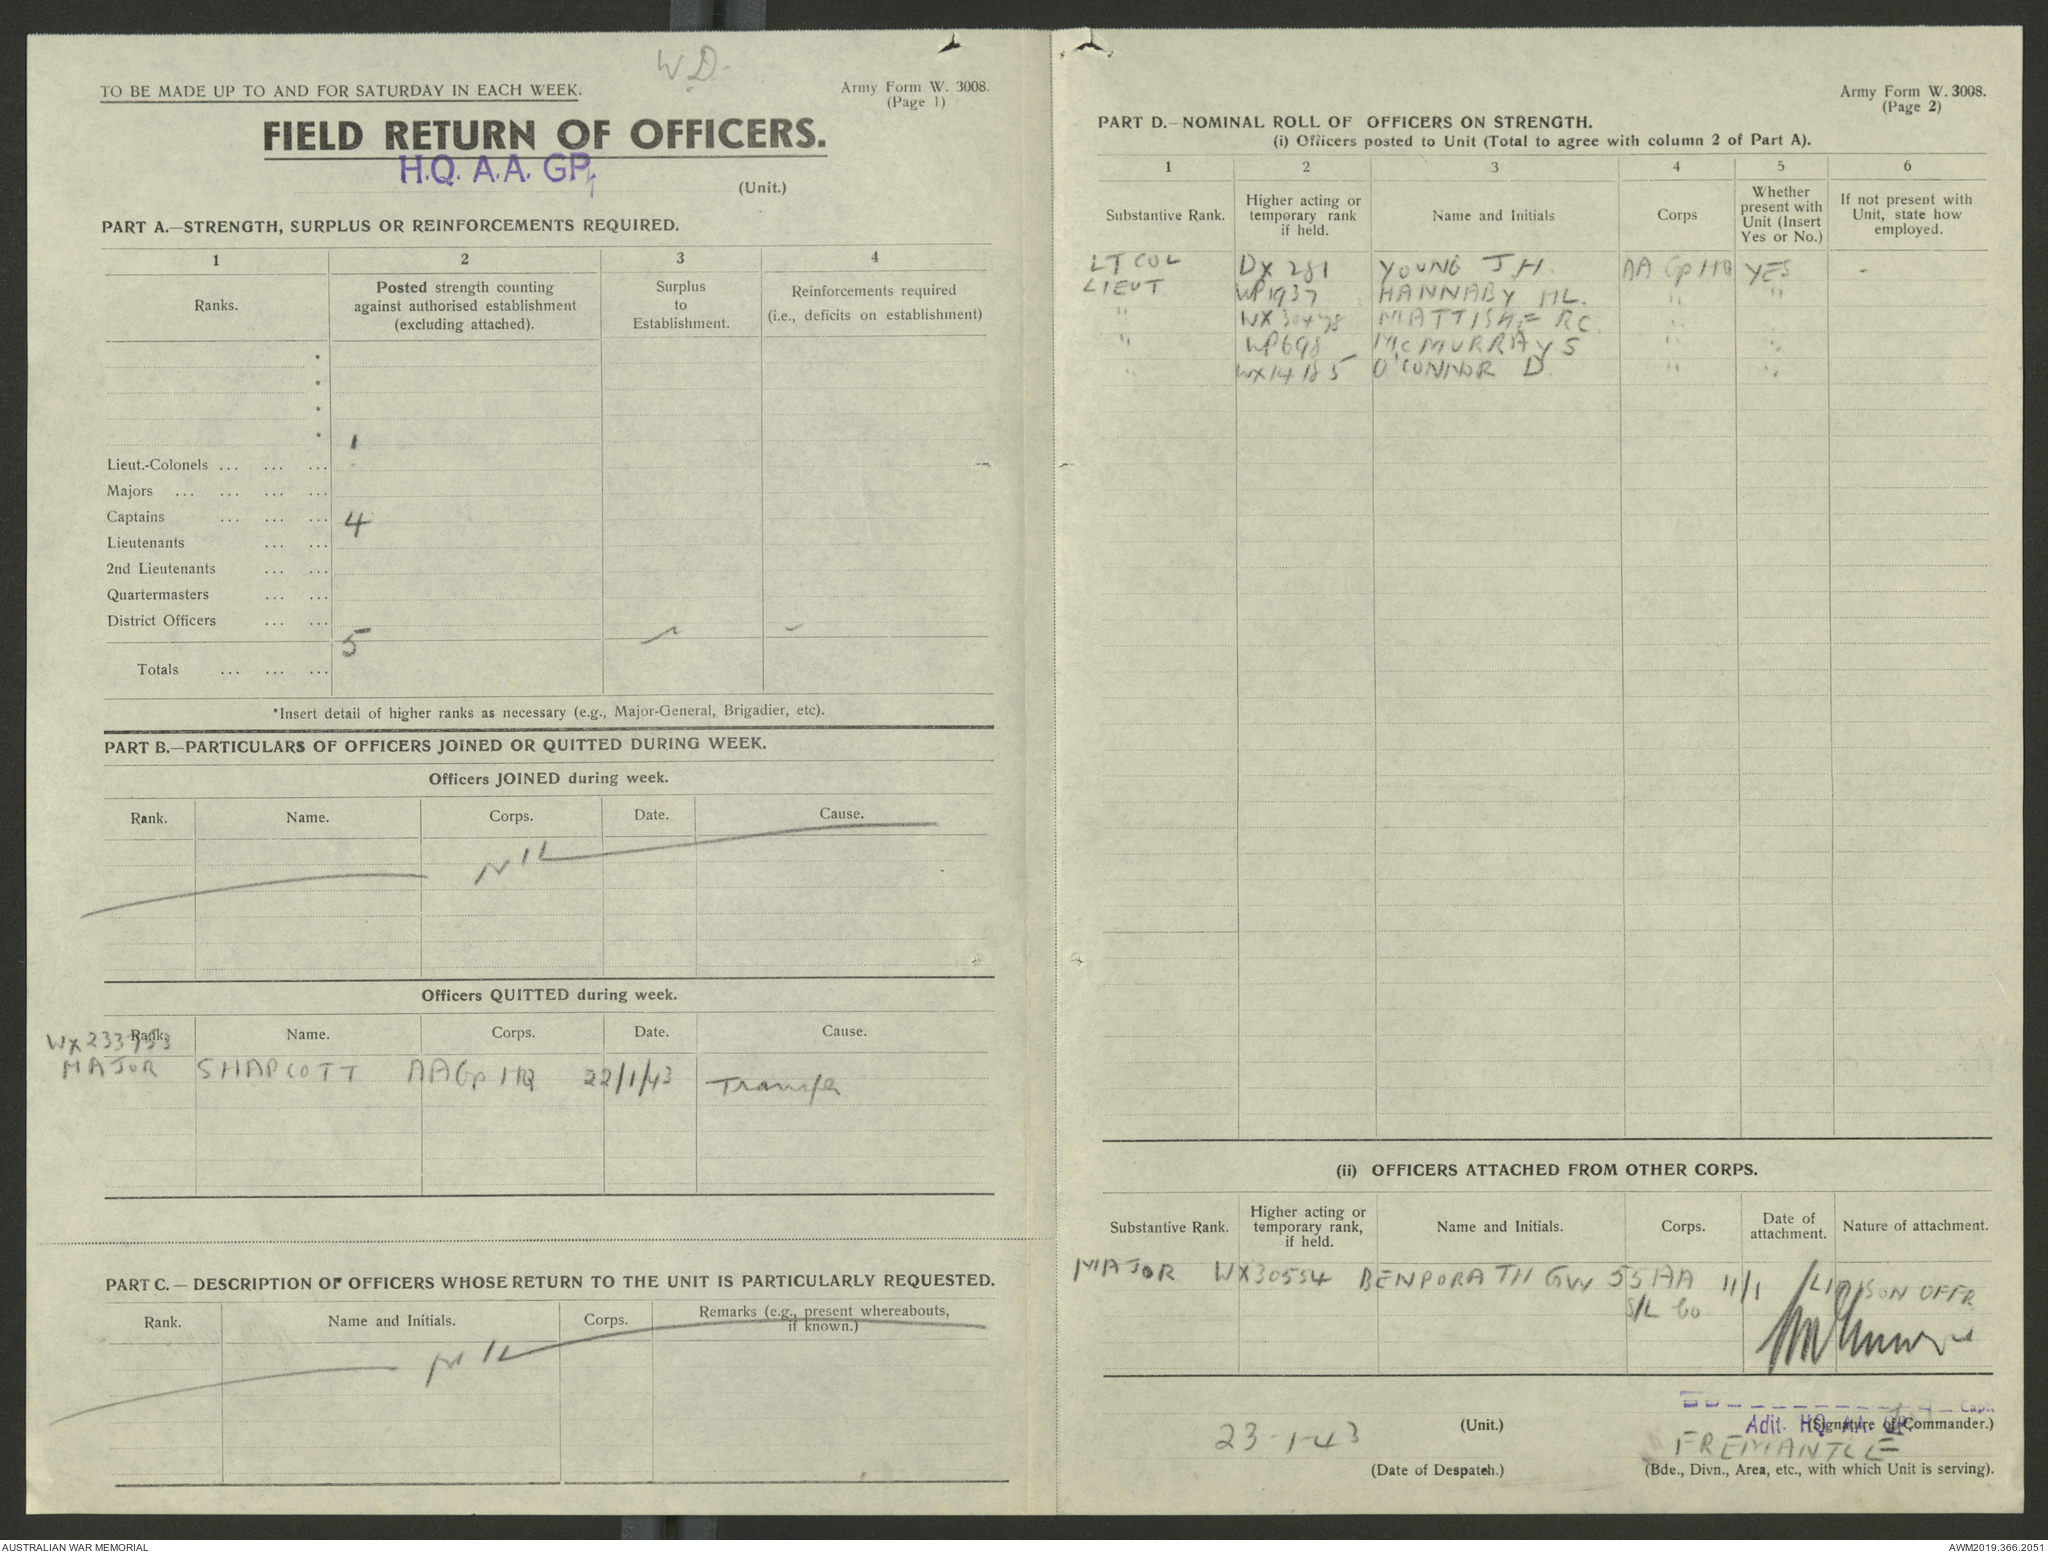 W D.
TO BE MADE UP TO AND FOR SATURDAY IN EACH WEEK.
Army Form W. 3008.
(Page 1)
FIELD RETURN OF OFFICERS.
H.Q. A.A. GP.
(Unit.)
PART A.—STRENGTH, SURPLUS OR REINFORCEMENTS REQUIRED.
1 2 3 4
Ranks. Posted strength counting against authorised establishment (excluding attached). Surplus to Establishment. Reinforcements required (i.e., deficits on establishment)
*
*
*
*
1
Lieut.-Colonels ... ... ...
Majors ... ... ... ...
Captains ... ... ... 4
Lieutenants ... ...
2nd Lieutenants ... ...
Quartermasters ... ...
District Officers ... ...
5
Totals ... ... ...
*Insert detail of higher ranks as necessary (e.g., Major-General, Brigadier, etc).
PART B.—PARTICULARS OF OFFICERS JOINED OR QUITTED DURING WEEK.
Officers JOINED during week.
Rank. Name. Corps. Date. Cause.
NIL
Officers QUITTED during week.
Rank. Name. Corps. Date. Cause.
MAJOR SHAPCOTT AA Gp HQ 22/1/43 Transfer
PART C. — DESCRIPTION OF OFFICERS WHOSE RETURN TO THE UNIT IS PARTICULARLY REQUESTED.
Rank. Name and Initials. Corps. Remarks (e.g., present whereabouts, if known.)
NIL
Army Form W. 3008.
(Page 2)
PART D.—NOMINAL ROLL OF OFFICERS ON STRENGTH.
(i) Officers posted to Unit (Total to agree with column 2 of Part A).
1 2 3 4 5 6
Substantive Rank. Higher acting or temporary rank if held. Name and Initials Corps Whether present with Unit (Insert Yes or No.) If not present with Unit, state how employed.
LT COL DX 281 YOUNG J H. AA Gp HQ YES -
LIEUT WP1937 HANNABY HL. " "
" WX30478 MATTISKE RC. "
" WP698 McMURRAY S " "
" WX14185 O'CONNOR D. " "
(ii) OFFICERS ATTACHED FROM OTHER CORPS.
Substantive Rank. Higher acting or temporary rank, if held. Name and Initials. Corps. Date of attachment. Nature of attachment.
MAJOR WX30554 BENPORATH GW 55 AA 11/1 LIAISON OFFR
S/L Co
Capt.
(Unit.) Adjt. HQ AA GP. (Signature of Commander.)
23-1-43 FREMANTLE
(Date of Despatch.) (Bde., Divn., Area, etc., with which Unit is serving).
AUSTRALIAN WAR MEMORIAL
AWM2019.366.2051